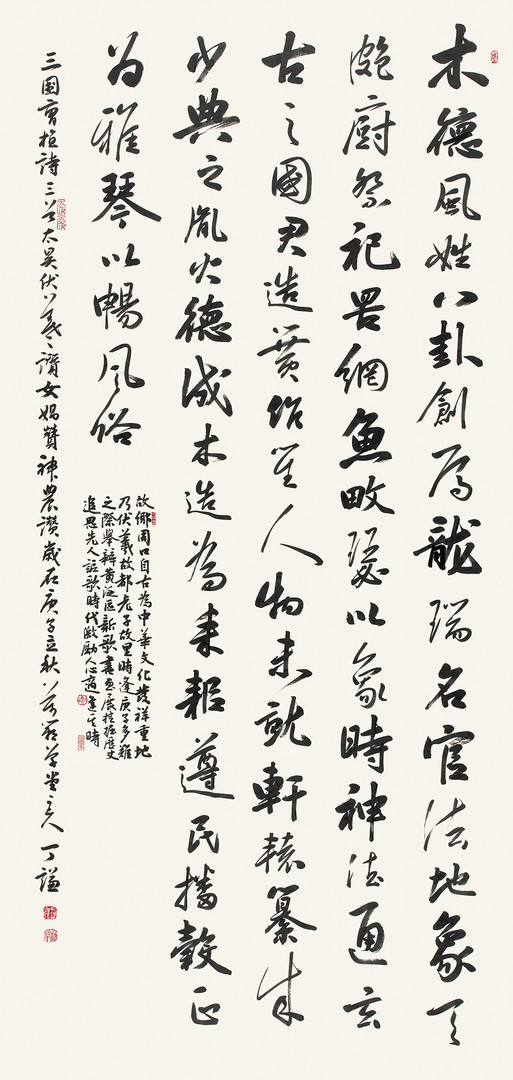 木德風姓八卦創焉龍瑞名官法地象天
庖廚祭祀罟網魚畋瑟以象時神德通玄
古之國君造簧笙人物未就軒轅纂成
少典之胤火德成木造為耒耜遵民播穀正
為雅琴以暢風俗
故鄉周口自古為中華文化發祥重地
乃伏羲故都老子故里時逢庚子多難
之際舉辦黃泛區新歌書畫展挖掘歷史
追思先人謳歌時代激勵人心適逢其時
三國曹植詩三首太昊伏羲讚女媧贊神農讚歲在庚子立秋草堂主人丁謙